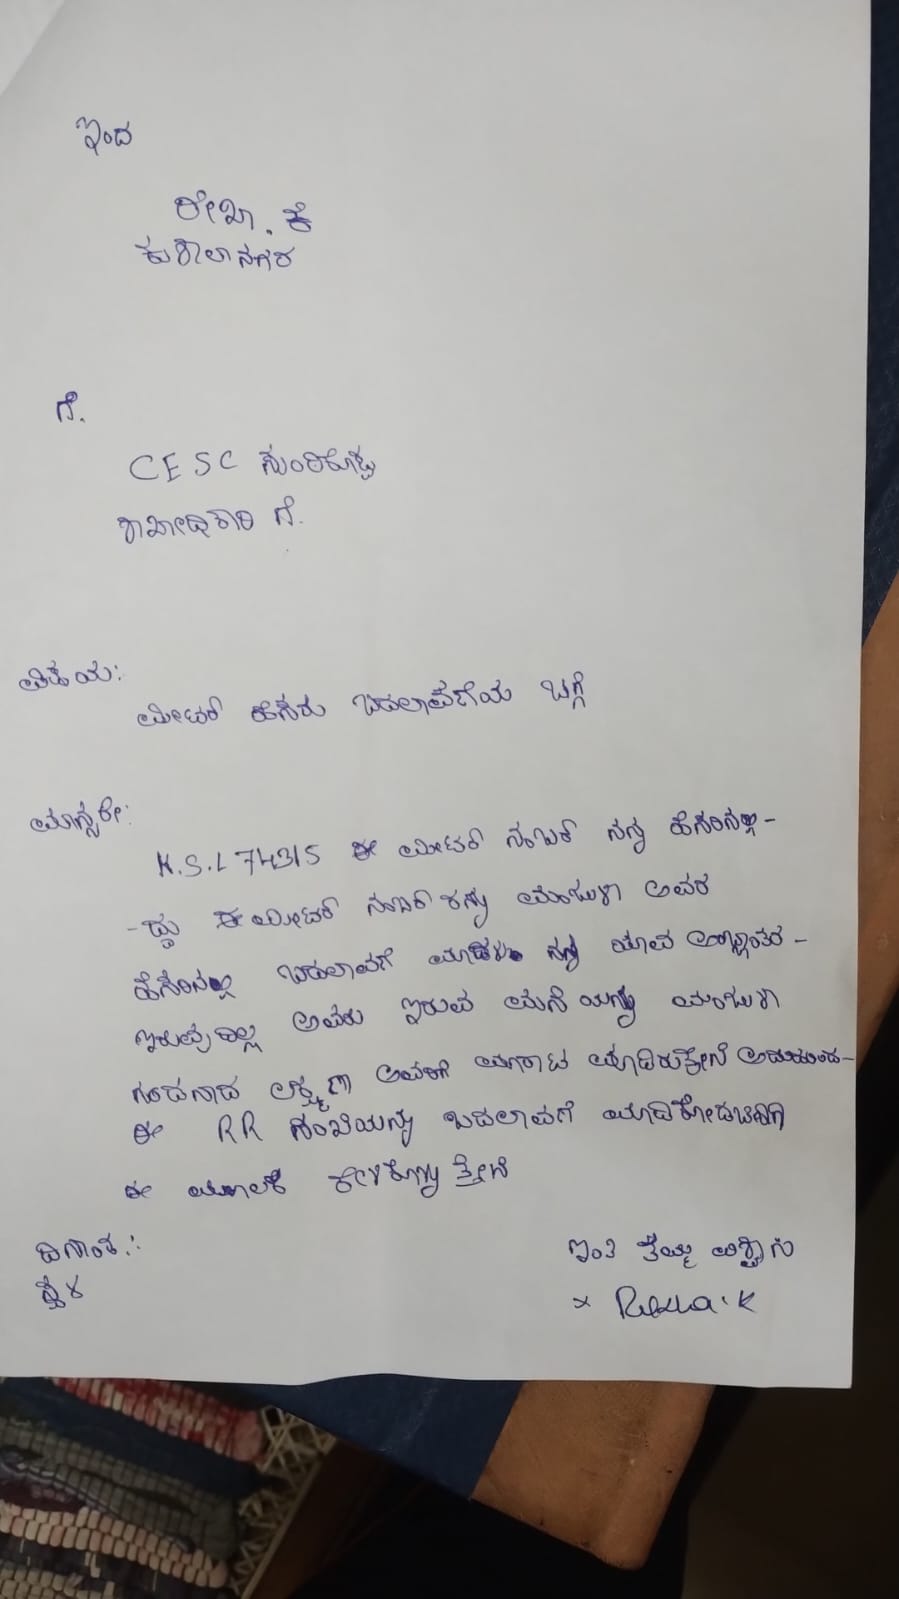 ಇಂದ
ರೇಖಾ. ಕೆ
ಕುಶಾಲನಗರ
ಗೆ.
CESC ಗುಂಠಿಕೊಪ್ಪ
ಶಾಖಾಧಿಕಾರಿ ಗೆ.
ವಿಷಯ:
ಮೀಟರ್ ಹೆಸರು ಬದಲಾವಣೆಯ ಬಗ್ಗೆ
ಮಾನ್ಯರೇ:
K.S.L 74315 ಈ ಮೀಟರ್ ನಂಬರ್ ನನ್ನ ಹೆಸರಿನಲ್ಲಿ-
-ದ್ದು ಈ ಮೀಟರ್ ನಂಬರ್ ಮಂಜುಳಾ ಅವರ
ಹೆಸರಿನಲ್ಲಿ ಬದಲಾವಣೆ ಮಾಡಲು ನನ್ನ ಯಾವ
ಇರುವುದಿಲ್ಲ ಅವರು ಇರುವ ಮನೆಯನ್ನು ಮಂಜುಳಾ
ಗಂಡನಾದ ಲಕ್ಷ್ಮಣ ಅವರಿಗೆ ಮಾರಾಟ ಮಾಡಿರುತ್ತೇನೆ ಆದುದರಿಂದ-
ಈ RR ಸಂಖ್ಯೆಯನ್ನು ಬದಲಾವಣೆ
ಈ ಮೂಲಕ ಕೇಳಿಕೊಳ್ಳುತ್ತೇನೆ
ದಿನಾಂಕ.:
ಸ್ಥಳ
ಇಂತಿ ತಮ್ಮ ವಿಶ್ವಾಸಿ
x Rekha.K